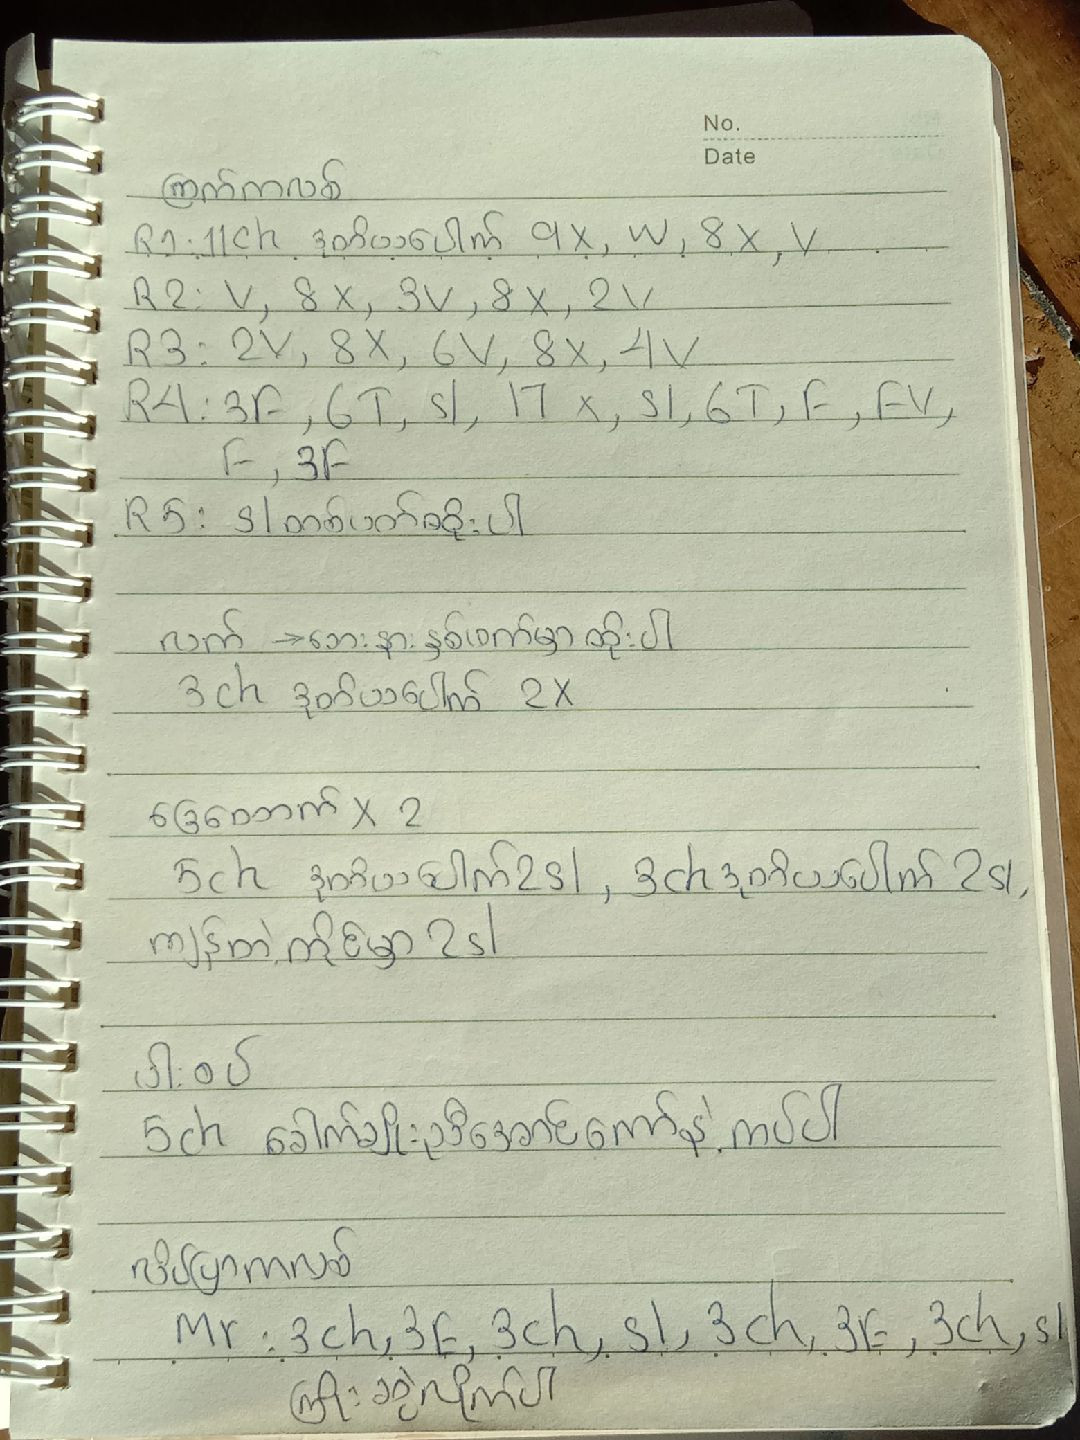 No.
Date
ကြွက်ကလစ်
R1: 11ch ဒုတိယပေါက် 9X, W, 8X, V
R2: V, 8X, 3V, 8X, 2V
R3: 2V, 8X, 6V, 8X, 4V
R4: 3F, 6T, sl, 17X, sl, 6T, F, FV,
F, 3F
R5: sl တစ်ပတ်ထိုးပါ
လက် → ဘေးနားနှစ်ဖက်မှာထိုးပါ
3ch ဒုတိယပေါက် 2X
ခြေထောက် X 2
5ch ဒုတိယပေါက် 2sl, 3ch ဒုတိယပေါက် 2sl,
ကျန်တဲ့တိုင်မှာ 2sl
ပါးစပ်
5ch ခေါက်ချိုးညီအောင်ကော်နဲ့ကပ်ပါ
လိပ်ပြာကလစ်
Mr: 3ch, 3F, 3ch, sl, 3ch, 3F, 3ch, sl
ကြိုးဆွဲလိုက်ပါ